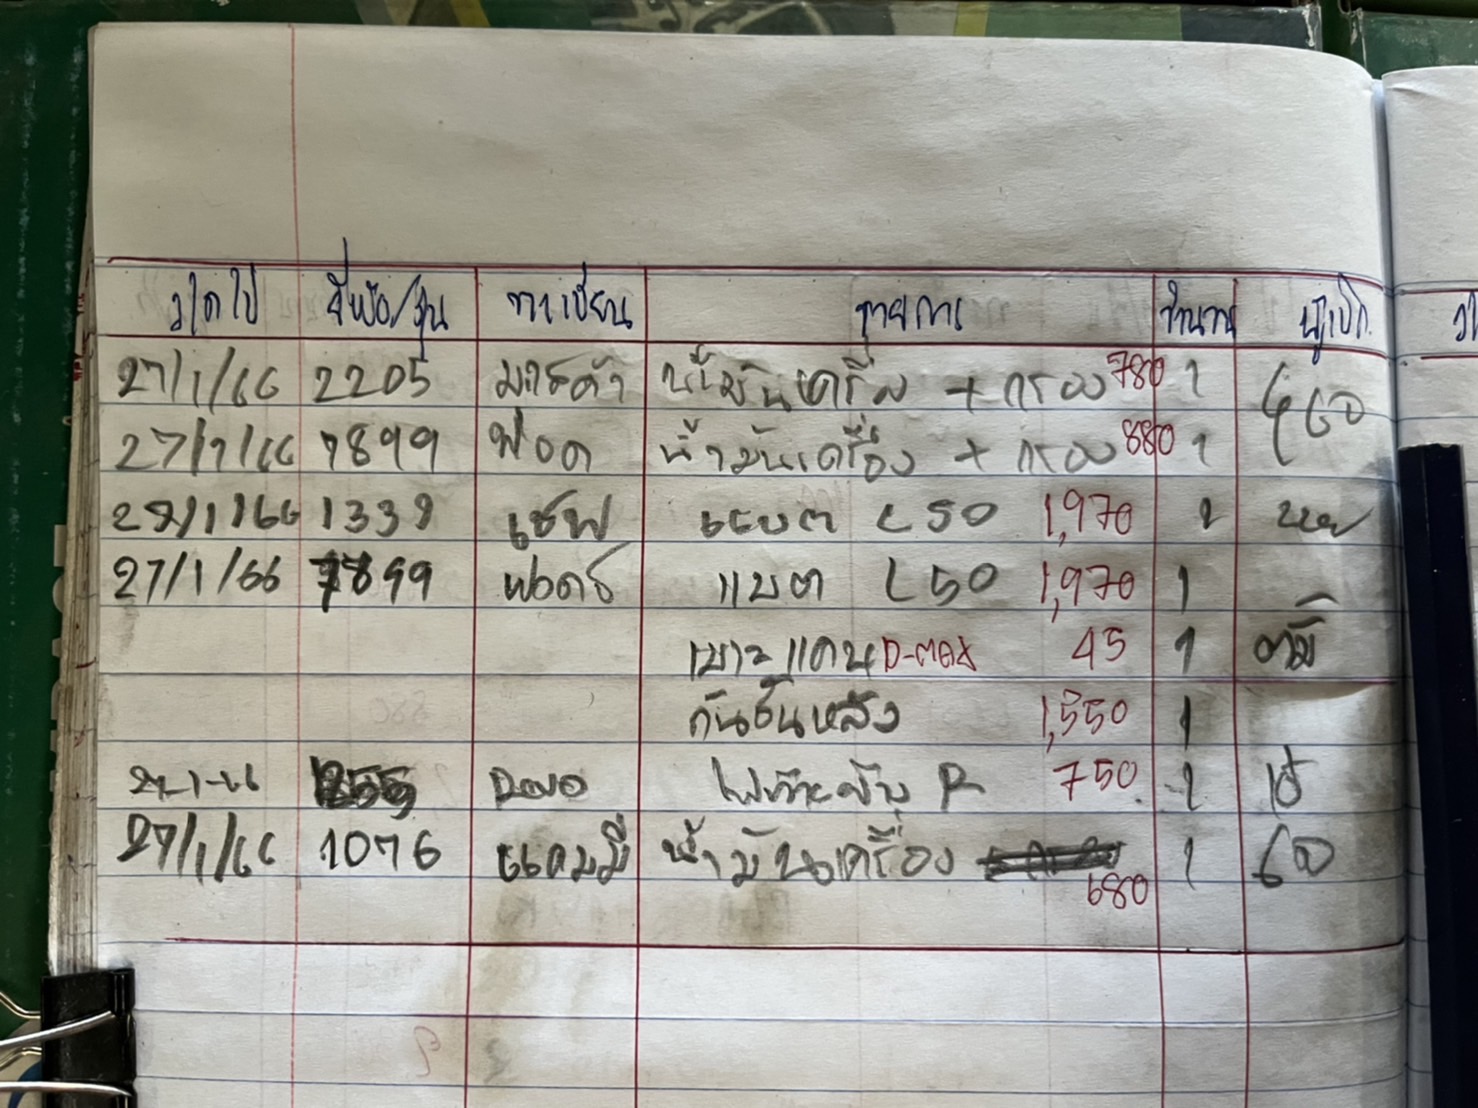 ว/ด/ป ยี่ห้อ/รุ่น ทะเบียน รายการ จำนวน ผู้เบิก
27/1/66 2205 มาสด้า น้ำมันเครื่อง + กรอง 780 1
27/1/66 7899 ฟอด น้ำมันเครื่อง + กรอง 880 1
1339 เชฟ แบต L50 1,970 1
27/1/66 7899 ฟอดร์ แบต L50 1,970 1
เบาะแคน D-max 45 1
กันชนหลัง 1,550 1
750 1
27/1/66 1076 แคมมี่ น้ำมันเครื่อง 1
680